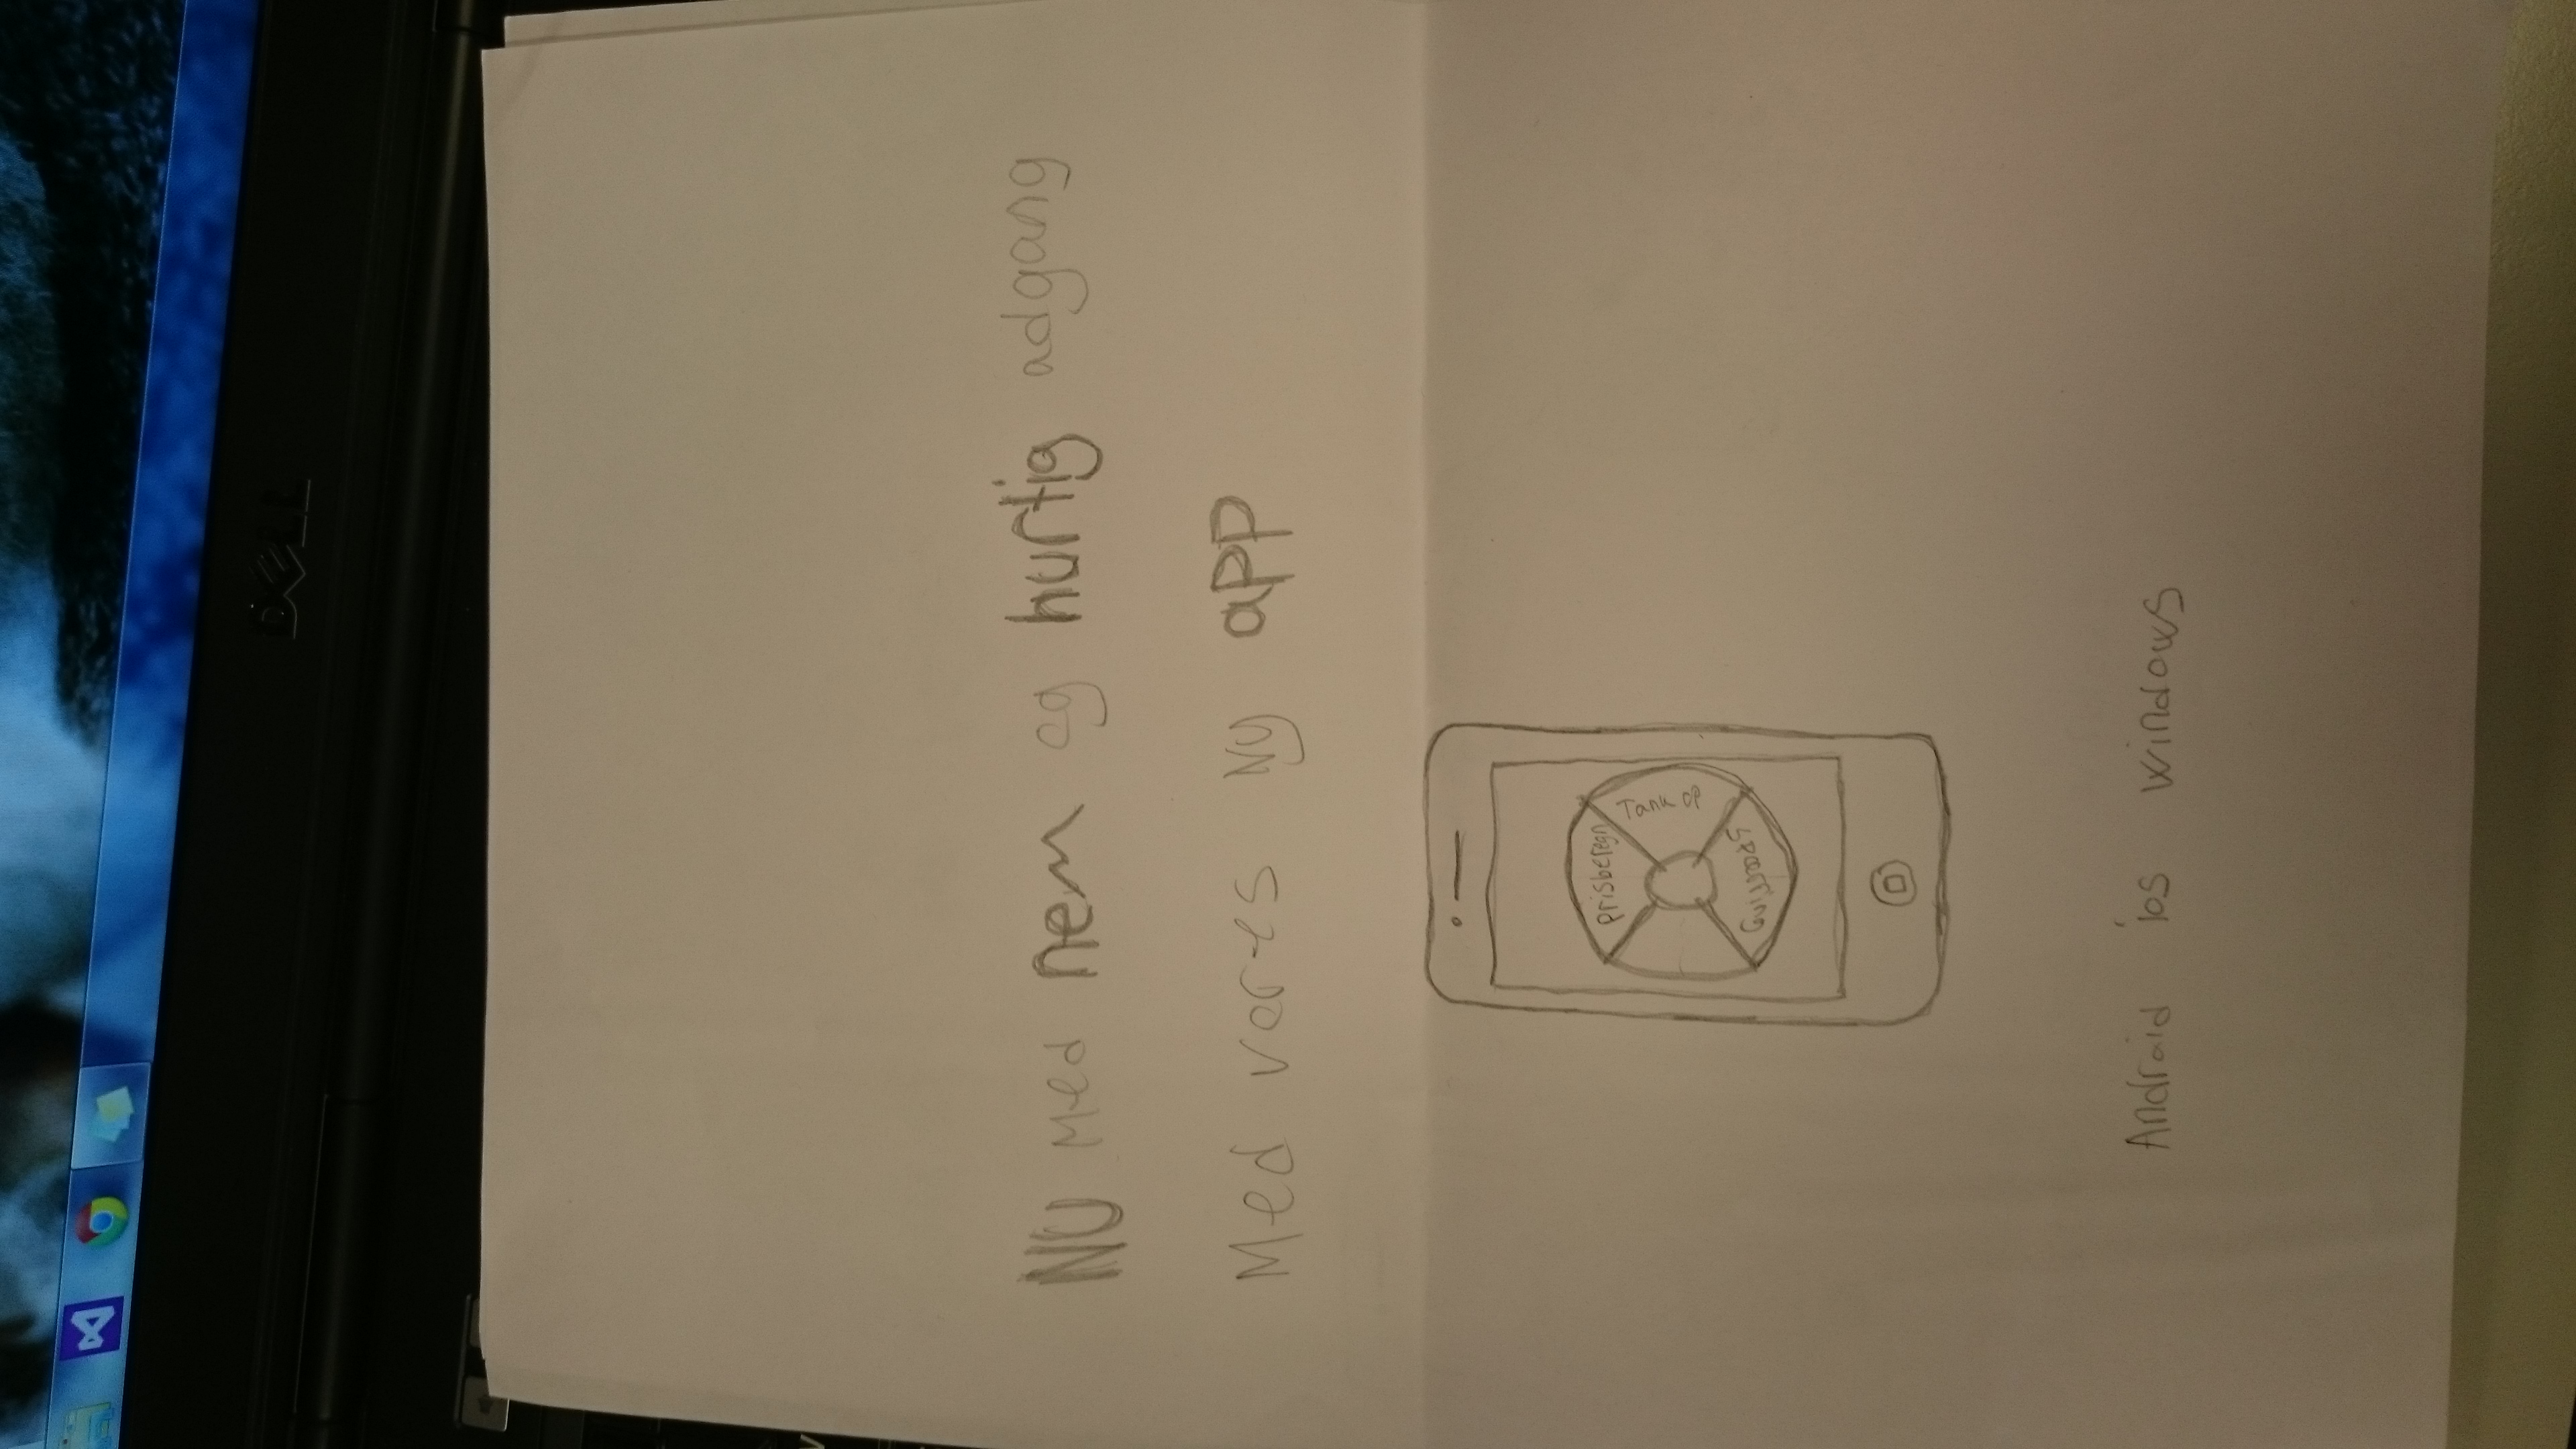 NU med nem og hurtig adgang
Med vores Ny app
Prisberegn
Tank op
Android ios windows
DELL